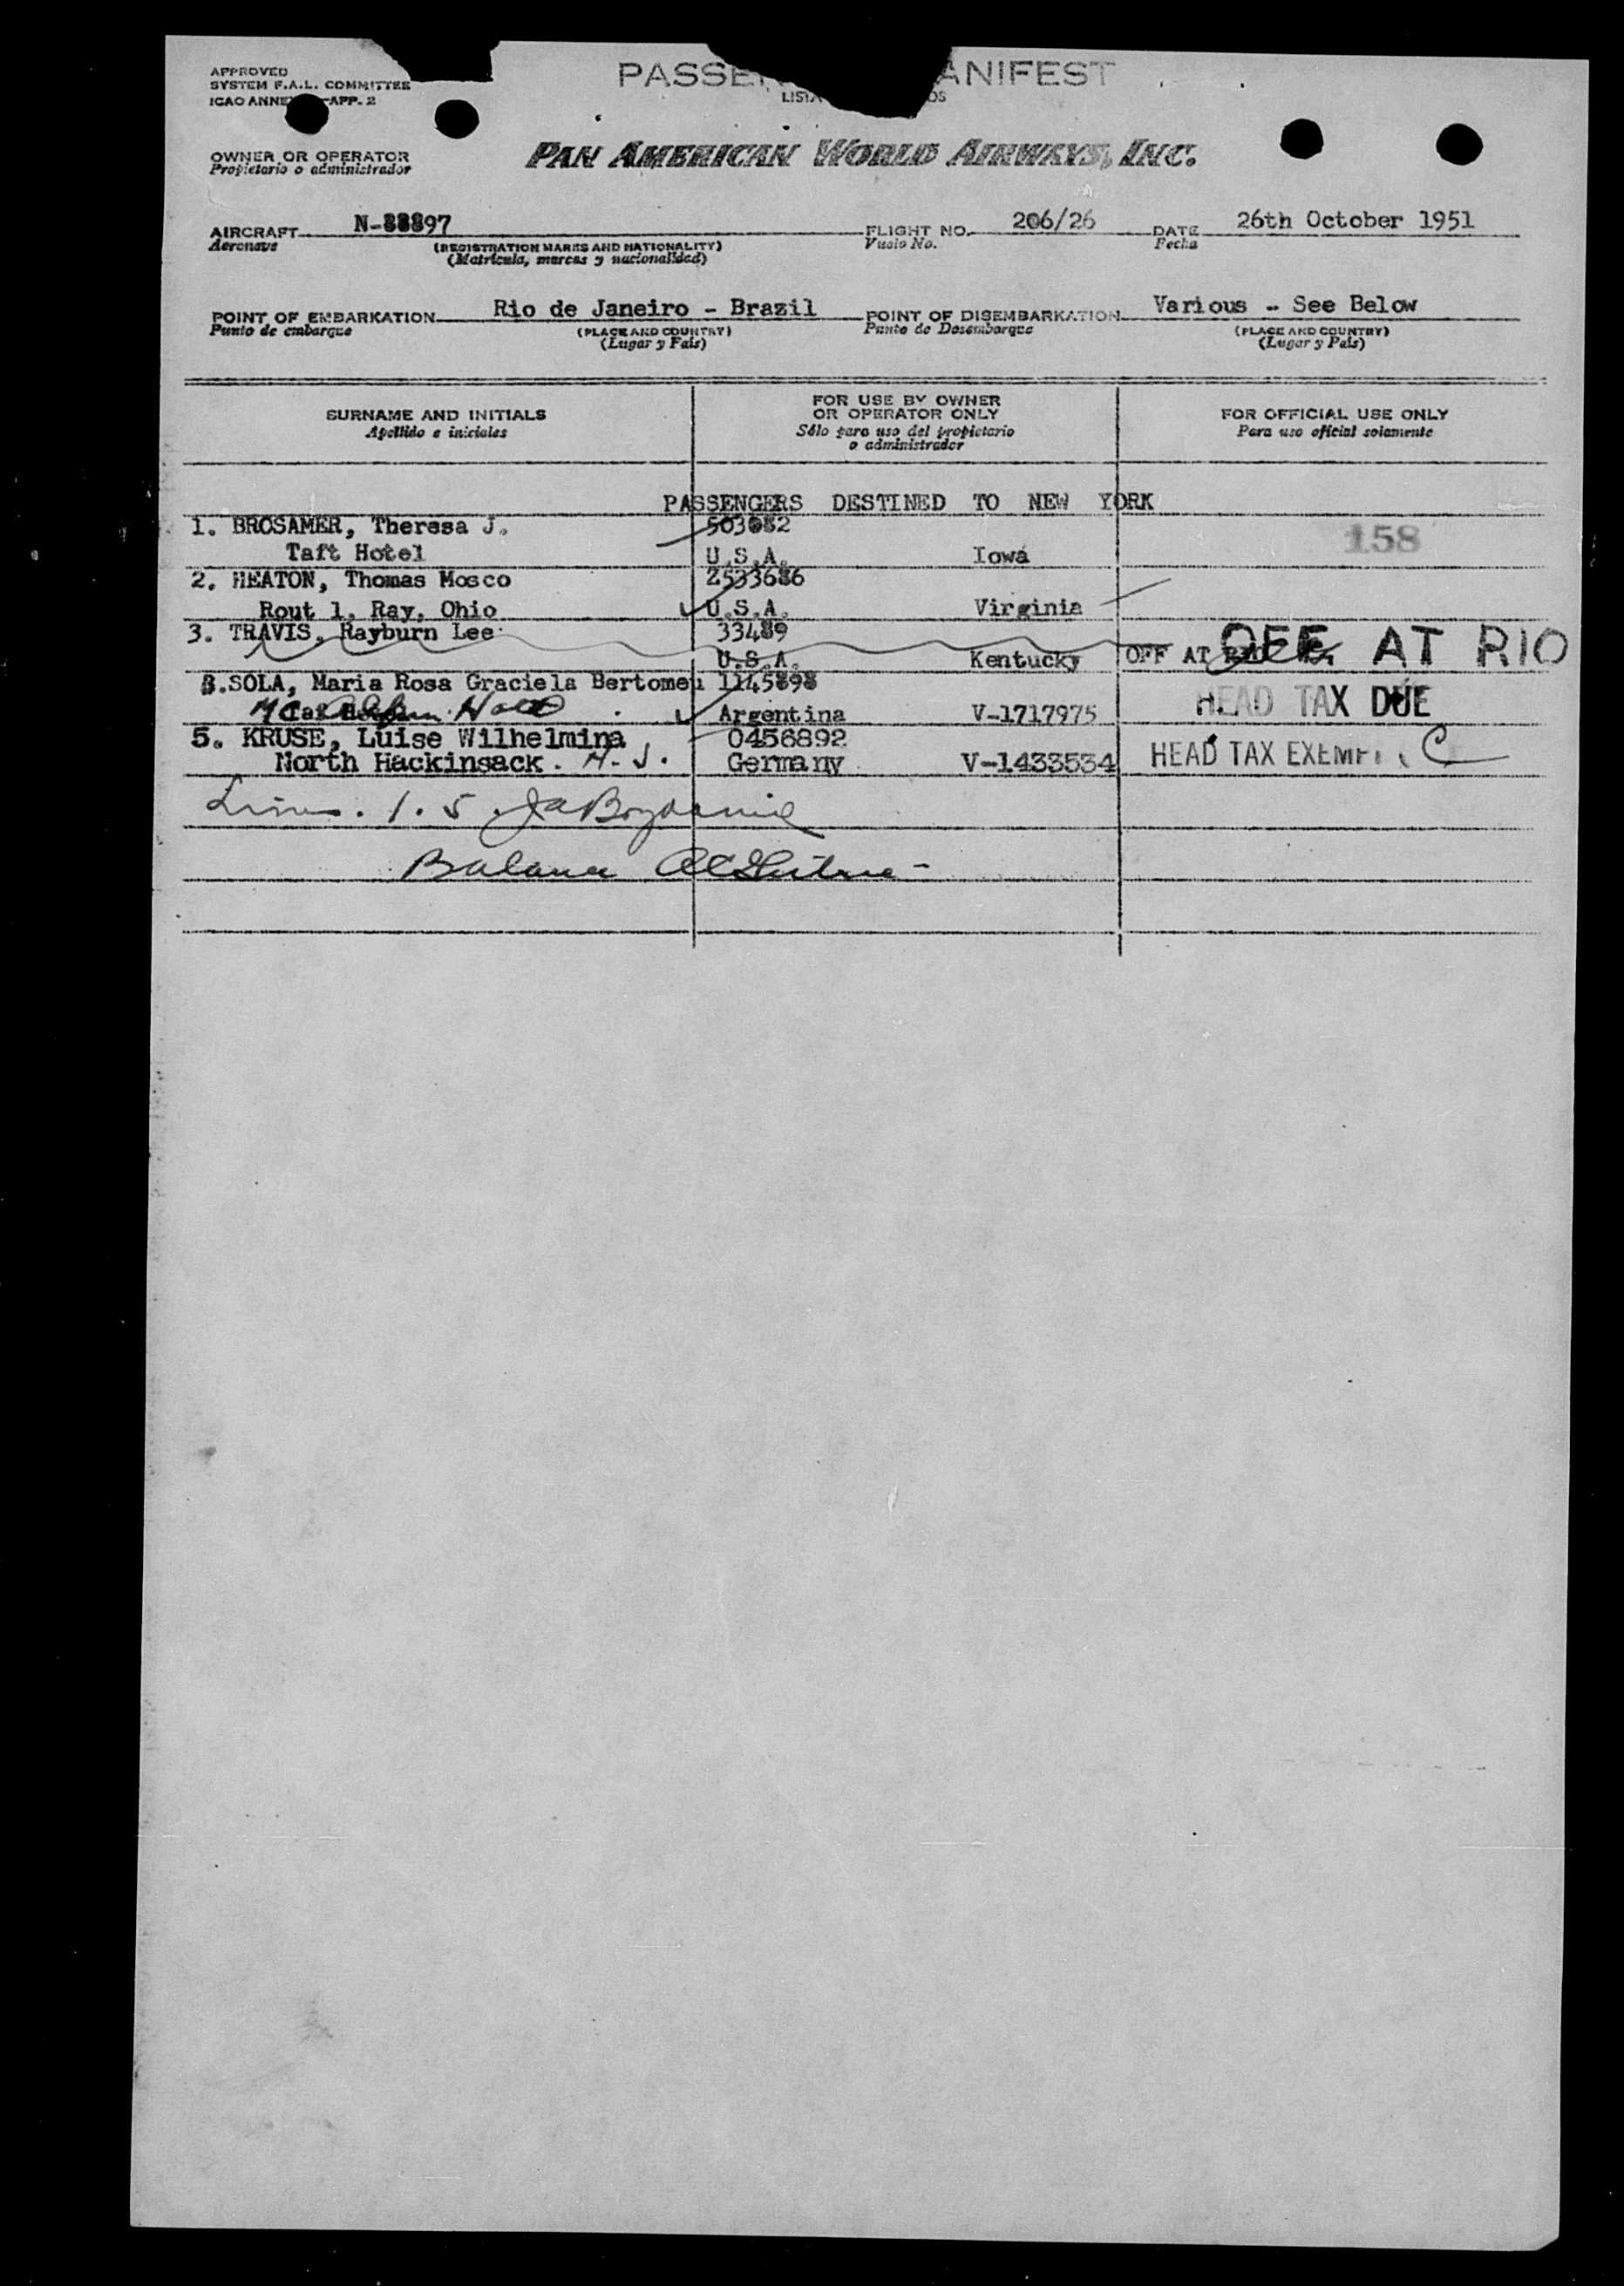 APPROVED
SYSTEM F.A.L. COMMITTEE
ICAO ANNEX APP. 2
PASSEN ANIFEST
LISTA OS
OWNER OR OPERATOR
Propietario o administrador
PAN AMERICAN WORLD AIRWAYS, INC.
AIRCRAFT N-88897 FLIGHT NO. 206/26 DATE 26th October 1951
Aeronave (REGISTRATION MARKS AND NATIONALITY) Vuelo No. Fecha
(Matrícula, marcas y nacionalidad)
POINT OF EMBARKATION Rio de Janeiro - Brazil POINT OF DISEMBARKATION Various - See Below
Punto de embarque (PLACE AND COUNTRY) Punto de Desembarque (PLACE AND COUNTRY)
(Lugar y País) (Lugar y País)
SURNAME AND INITIALS
Apellido e iniciales
FOR USE BY OWNER
OR OPERATOR ONLY
Sólo para uso del propietario
o administrador
FOR OFFICIAL USE ONLY
Para uso oficial solamente
PASSENGERS DESTINED TO NEW YORK
1. BROSAMER, Theresa J. 503082
Taft Hotel U.S.A. Iowa 158
2. HEATON, Thomas Mosco Z533686
Rout 1, Ray, Ohio U.S.A. Virginia
3. TRAVIS, Rayburn Lee 33489
U.S.A. Kentucky OFF AT OFF AT RIO
3.SOLA, Maria Rosa Graciela Bertomeu 1145898
Argentina V-1717975 HEAD TAX DUE
5. KRUSE, Luise Wilhelmina 0456892
North Hackinsack. N.J. Germany V-1433534 HEAD TAX EXEMPT C
Lines. 1. 5
Balance